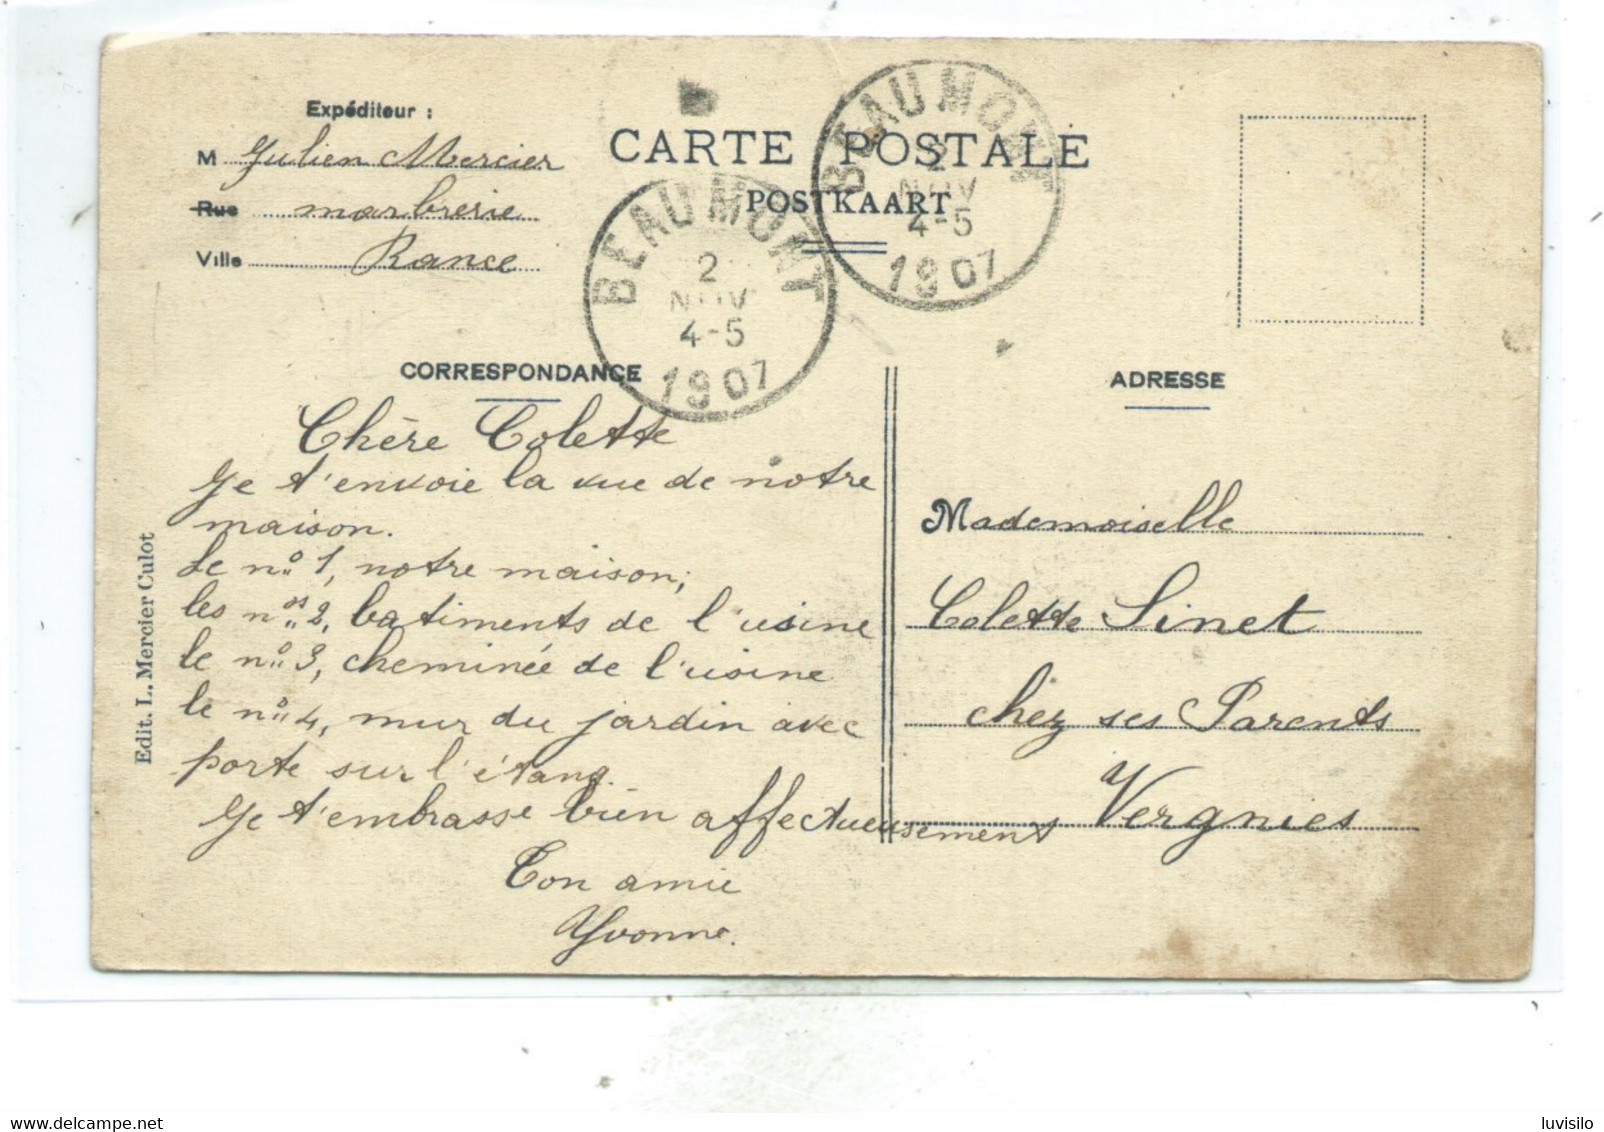 Expéditeur :
M Julien Mercier
Rue marbrerie
Ville Rance
CARTE POSTALE
POSTKAART
BEAUMONT
2
NOV
4-5
1907
BEAUMONT
2
NOV
4-5
1907
CORRESPONDANCE
Chère Colette
Je t'envoie la vue de notre
maison.
Le nº 1, notre maison;
les nos 2, batiments de l'usine
le nº 3, cheminée de l'usine
le nº 4, mur du jardin avec
porte sur l'étang.
Je t'embrasse bien affectueusement
Ton amie
Yvonne.
Edit. L. Mercier Culot
ADRESSE
Mademoiselle
Colette Sinet
chez ses Parents
Vergnies
luvisilo